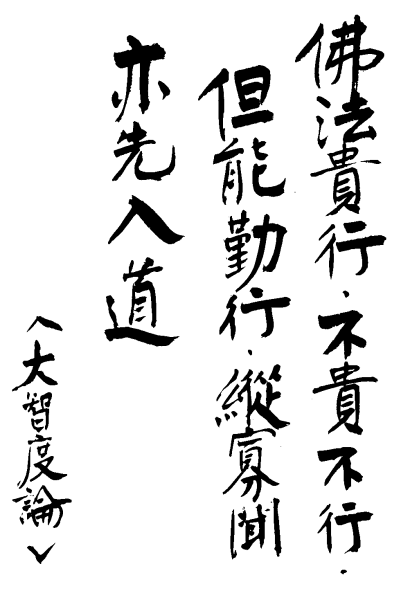 佛法貴行．不貴不行．
但能勤行．縱寡聞
亦先入道
〈大智度論〉